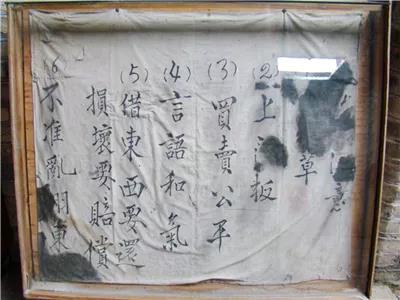 意
草
(2)上板
(3)買賣公平
(4)言語和氣
(5)借東西要還
損壞要賠償
6不准亂東